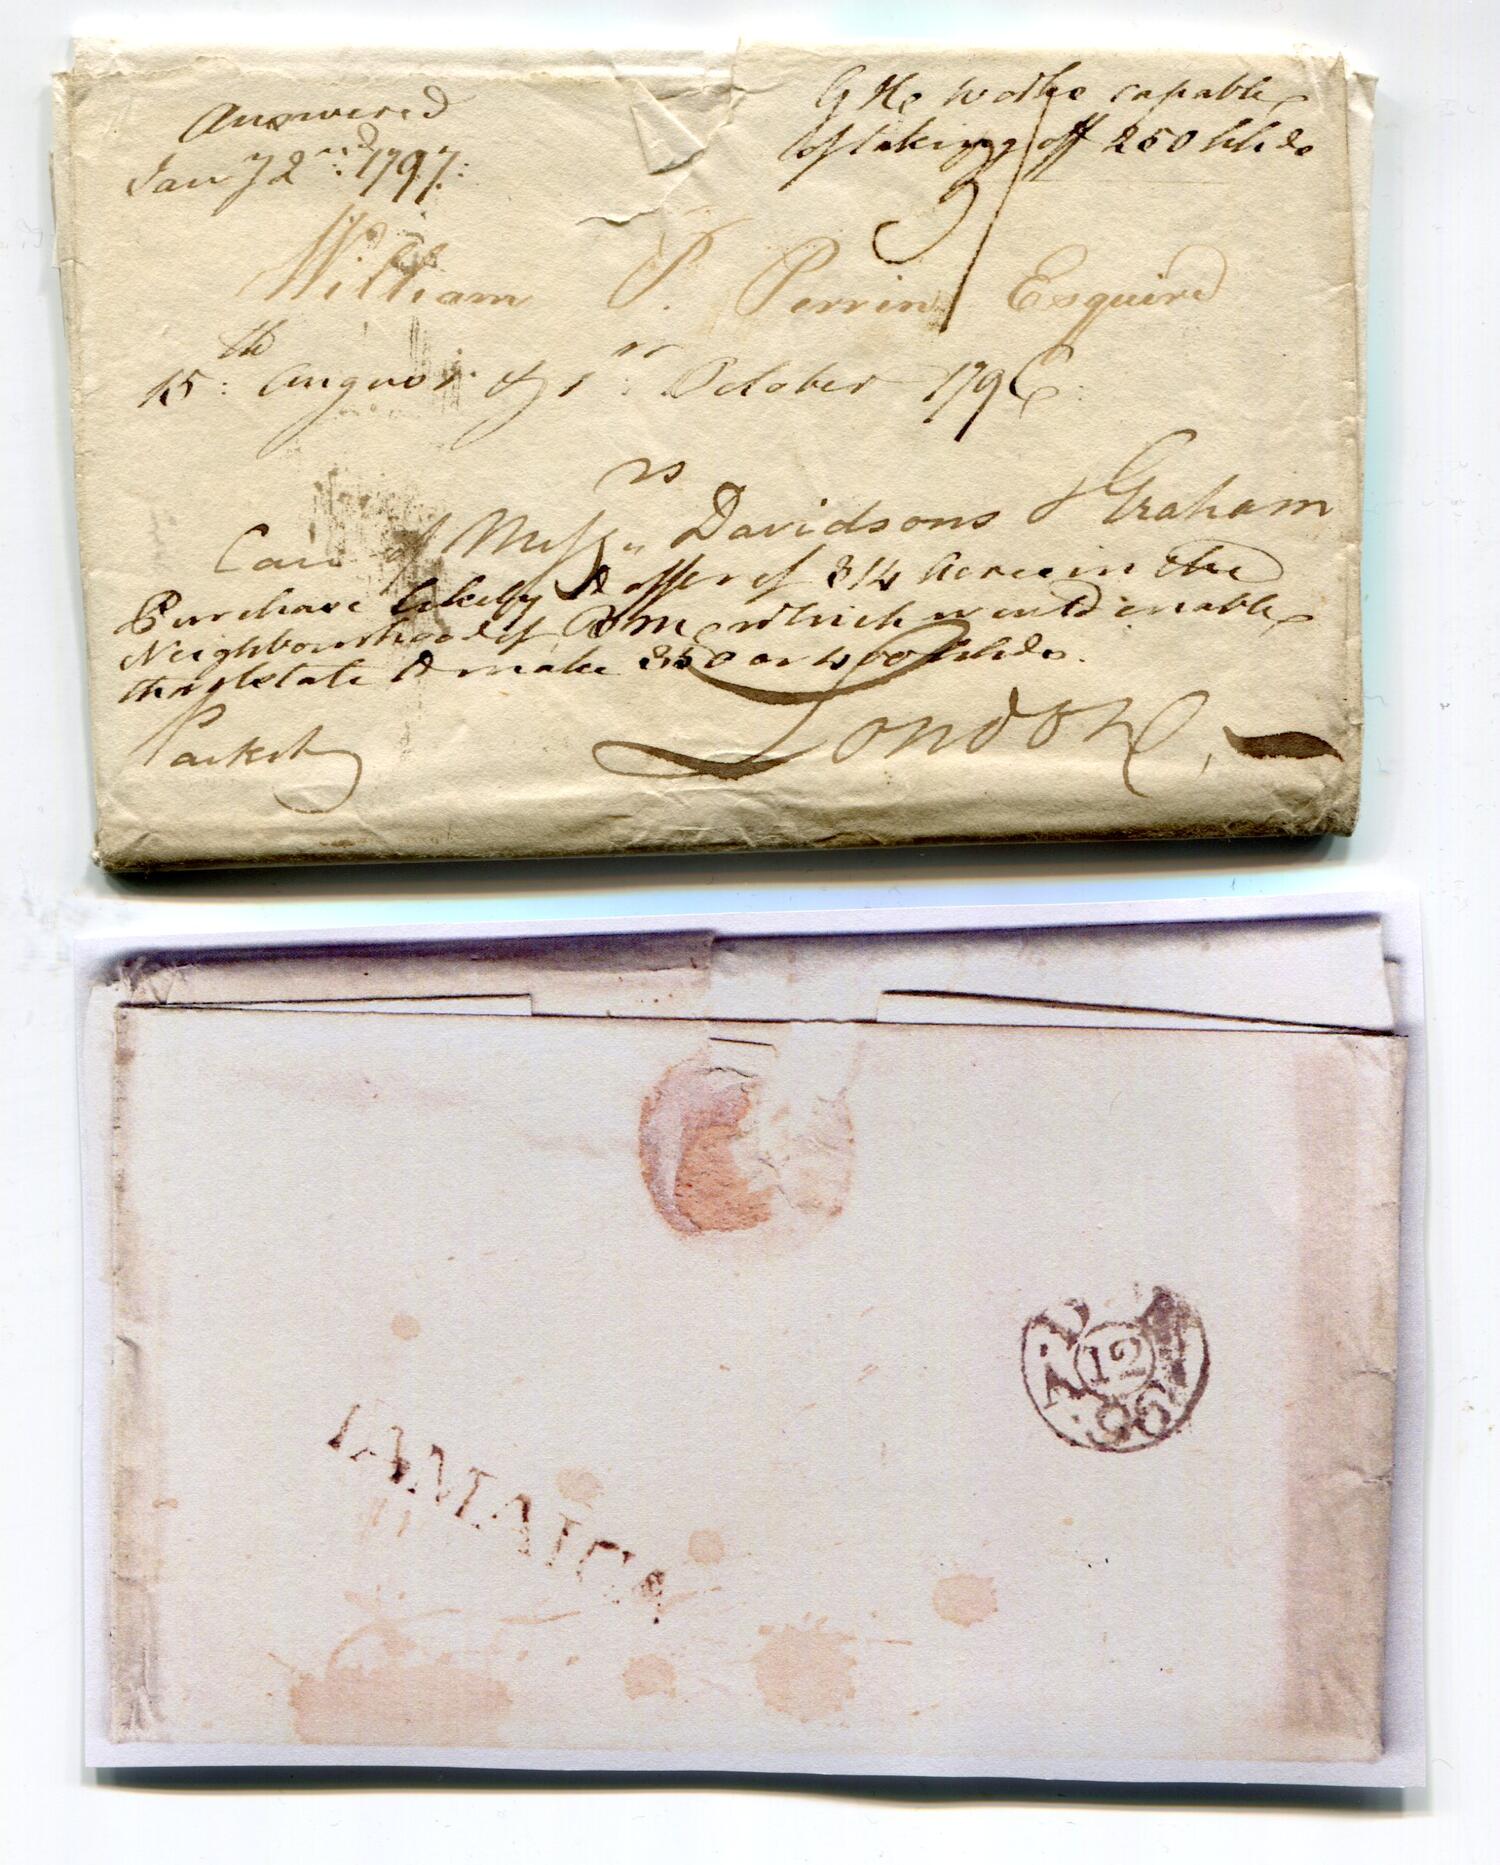 Answered
Jan y 2nd: 1797:
G He works capable
of taking off 250 hhds
3/
William P. Perrin Esquire
15th: August & 1st: October 1796:
Care of Messrs Davidsons & Graham
Purchase likely to offer of 314 Acres in the
Neighbourhood of which would enable
that Estate to make 350 or 400 hhds.
London,
Packet
JAMAICA
D
A 12
96